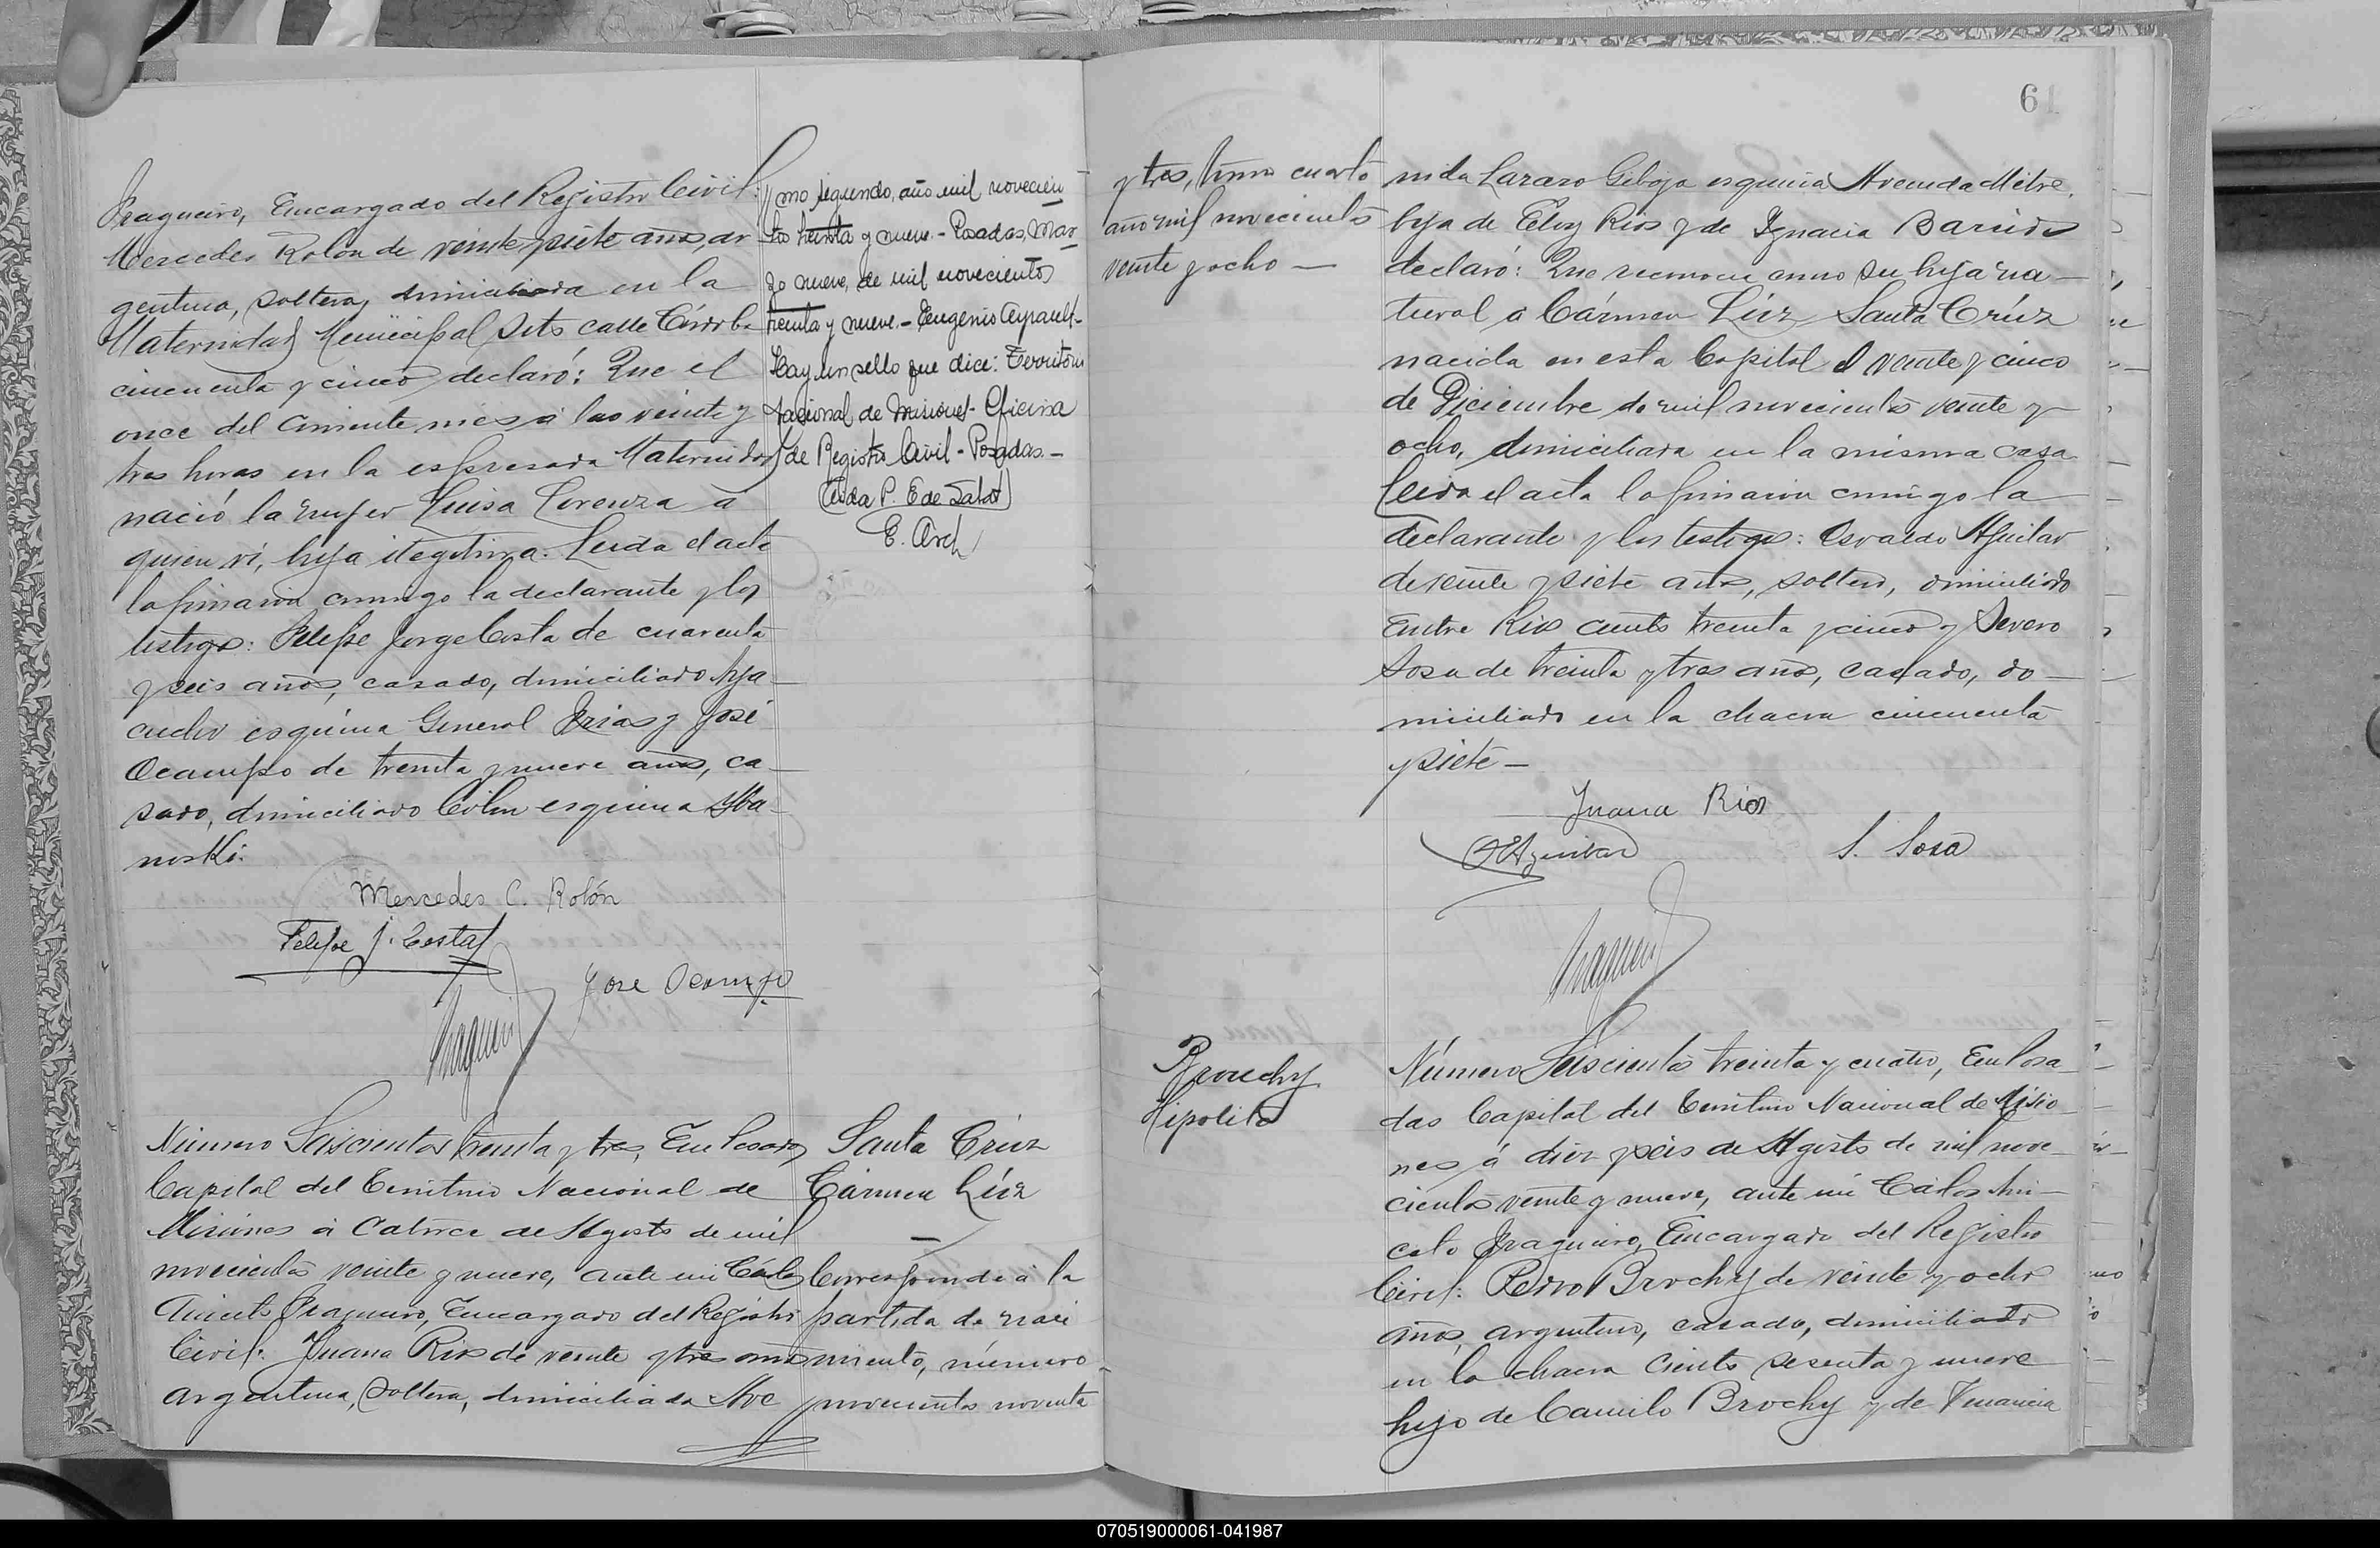 Fragueiro, Encargado del Registro Civil:
Mercedes Rolon de veinte y siete años, ar
gentina, soltera, domiciliada en la
Maternidad Municipal sito calle Córdoba
cincuenta y cinco, declaró: Que el
once del corriente mes á las veinte y
tres horas en la espresada Maternidad
nació la mujer Luisa Lorenza a
quien ví, hija ilegítima. Leida el acta
la firmaron conmigo la declarante y los
testigos: Felipe Jorge Costa de cuarenta
y seis años, casado, domiciliado Aya-
cucho esquina General Frias y José
Ocampo de treinta y nueve años, ca-
sado, domiciliado Colon esquina Yba-
noski.
Mercedes C. Rolón
Felipe J. Costa
Jose Ocampo
mo segundo, año mil novecien
tos treinta y nueve.- Posadas, Mar
zo nueve, de mil novecientos
treinta y nueve.- Eugenio Ayrault-
Hay un sello que dice: Territorio
Nacional de Misiones- Oficina
de Registro Civil- Posadas.-
E. Arch
Número Seiscientos treinta y tres, En Posadas
Capital del Territorio Nacional de
Misiones á Catorce de Agosto de mil
novecientos veinte y nueve, ante mi Carlos
Aniceto Fragueiro, Encargado del Registro
Civil: Juana Rios de veinte y tres años
argentina, soltera, domiciliada Ave
Santa Crúz
Cármen Lúz
—
Corresponde á la
partida de naci
miento, número
novecientos noventa
61
y tres, tomo cuarto
año mil novecientos
veinte y ocho —
nida Lazaro Giboja esquina Avenida Mitre,
hija de Eloy Rios y de Ignacia Barrios
declaró: Que reconoce como su hija na-
tural a Cármen Lúz Santa Crúz
nacida en esta Capital el veinte y cinco
de Diciembre de mil novecientos veinte y
ocho, domiciliada en la misma casa
Leida el acta la firmaron conmigo la
declarante y los testigos: Osvaldo Aguilar
de veinte y siete años, soltero, domiciliado
Entre Rios ciento treinta y cinco y Severo
Sosa de treinta y tres años, casado, do-
miciliado en la chacra cincuenta
y siete—
Juana Rios
O Aguilar
S. Sosa
Brouchy
Hipolito
Número Seiscientos treinta y cuatro, En Posa
das Capital del Territorio Nacional de Misio
nes á diez y seis de Agosto de mil nove-
cientos veinte y nueve, ante mi Carlos Ani-
ceto Fragueiro, Encargado del Registro
Civil: Pedro Brochy de veinte y ocho
años, argentino, casado, domiciliado
en la chacra Ciento sesenta y nueve
hijo de Camilo Brochy y de Venancia
070519000061-041987